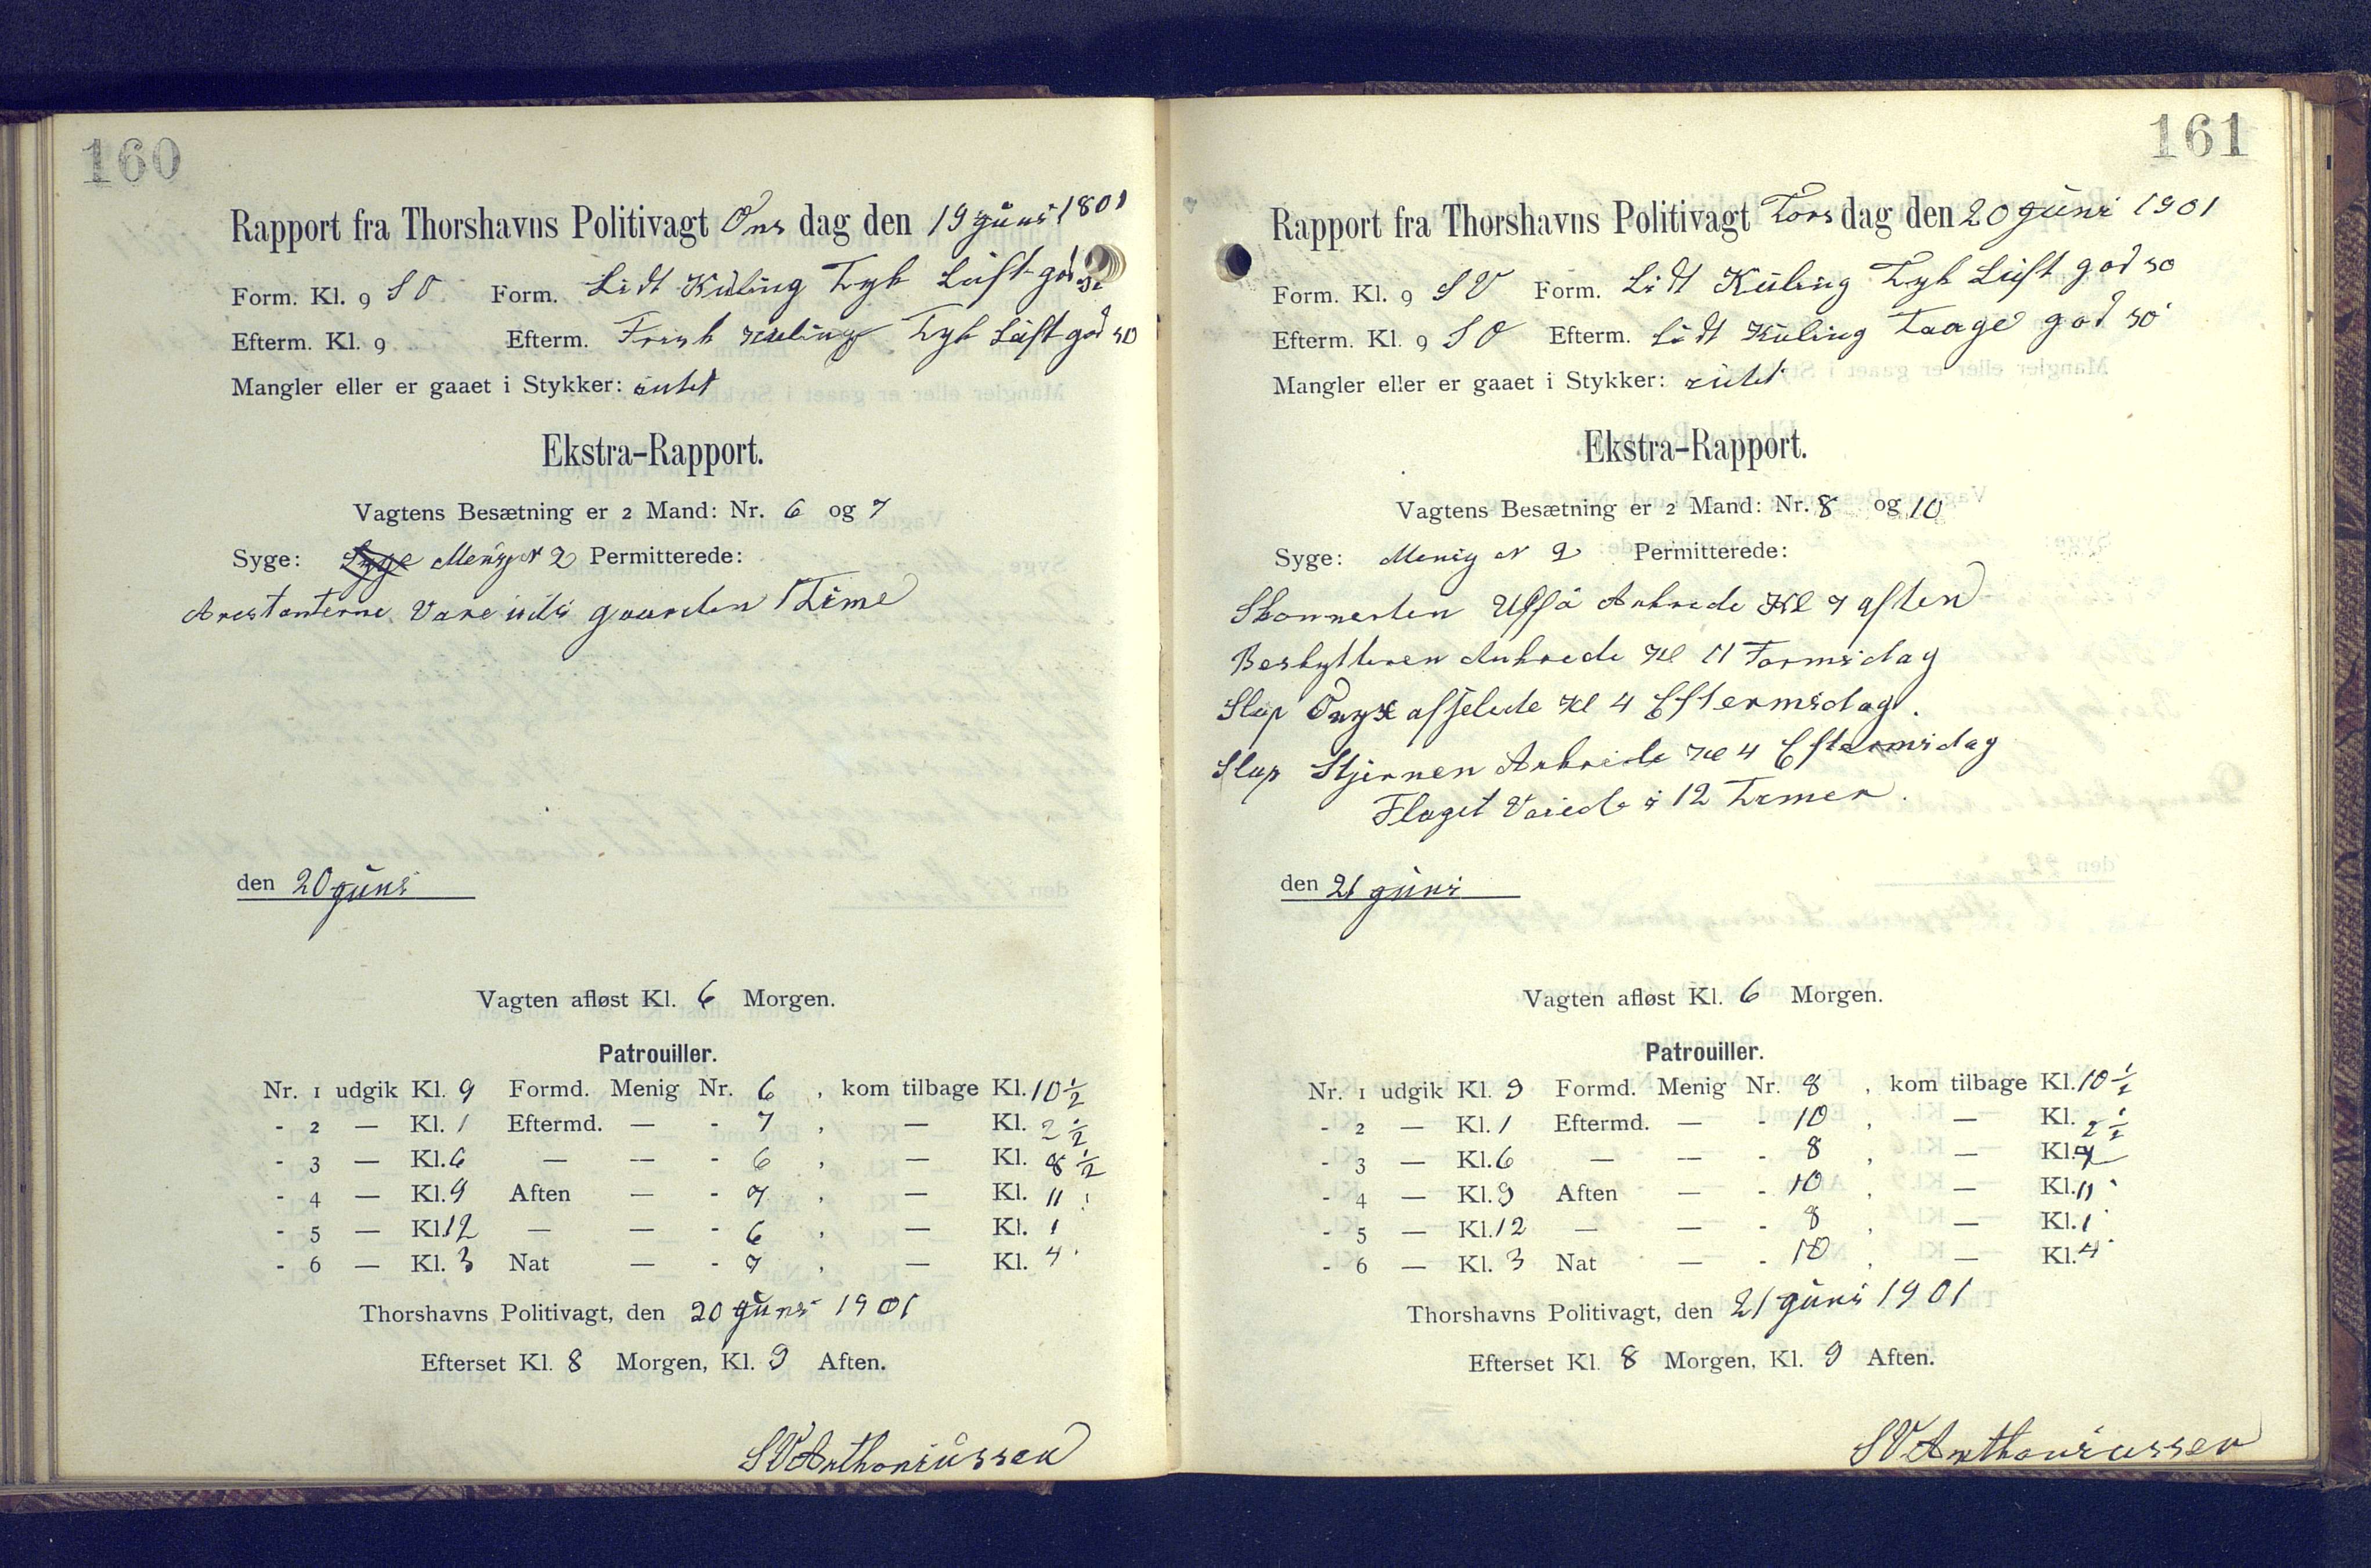 160
Rapport fra Thorshavns Politivagt Ons dag den 19 Juni 1801
Form. Kl. 9 SO Form. Lidt Kuling Tyk Luft god
Efterm. Kl. 9 Efterm. Frisk Kuling Tyk Luft god so
Mangler eller er gaaet i Stykker: intet
Ekstra-Rapport.
Vagtens Besætning er 2 Mand: Nr. 6 og 7
Syge: Syge Menig N 2 Permitterede:
Arestanterne Vare udi gaarden 1 Time
den 20 Juni
Vagten afløst Kl. 6 Morgen.
Patrouiller.
Nr. 1 udgik Kl. 9 Formd. Menig Nr. 6 , kom tilbage Kl. 10½
- 2 — Kl. 1 Eftermd. — - 7 , — Kl. 2½
- 3 — Kl. 6 — — - 6 , — Kl. 8½
- 4 — Kl. 9 Aften — - 7 , — Kl. 11
- 5 — Kl. 12 — — - 6 , — Kl. 1
- 6 — Kl. 3 Nat — - 7 , — Kl. 4
Thorshavns Politivagt, den 20 Juni 1901
Efterset Kl. 8 Morgen, Kl. 9 Aften.
SVAnthoniussen
161
Rapport fra Thorshavns Politivagt Tors dag den 20 Juni 1901
Form. Kl. 9 SV Form. Lidt Kuling Tyk Luft god so
Efterm. Kl. 9 SO Efterm. Lidt Kuling Taage god so
Mangler eller er gaaet i Stykker: intet
Ekstra-Rapport.
Vagtens Besætning er 2 Mand: Nr. 8 og 10
Syge: Menig N 2 Permitterede:
Skonnerten Ankrede Kl 7 aften
Beskytteren Ankrede Kl 11 Formidag
Slup Onyx afsjelede Kl 4 Eftermidag.
Slup Stjernen Ankrede Kl 4 Eftermidag
Flaget Vaiede i 12 Timer.
den 21 Juni
Vagten afløst Kl. 6 Morgen.
Patrouiller.
Nr. 1 udgik Kl. 9 Formd. Menig Nr. 8 , kom tilbage Kl. 10½
- 2 — Kl. 1 Eftermd. — - 10 , — Kl. 2½
- 3 — Kl. 6 — — - 8 , — Kl.
- 4 — Kl. 9 Aften — - 10 , — Kl. 11
- 5 — Kl. 12 — — - 8 , — Kl. 1
- 6 — Kl. 3 Nat — - 10 , — Kl. 4
Thorshavns Politivagt, den 21 Juni 1901
Efterset Kl. 8 Morgen, Kl. 9 Aften.
SVAnthoniussen